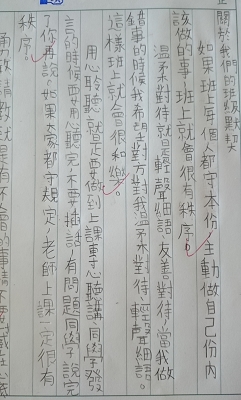 關於我們的班級默契
如果班上每個人都守本份,主動做自己份內
該做的事,班上就會很有秩序。
溫柔對待就是輕聲細語,友善對待,當我做
錯事的時候我希望對方對我溫柔對待、輕聲細語。
這樣班上就會很和樂。
用心聆聽就是要做到上課專心聽講,同學發
言的時候要用心聽完,不要插話,有問題同學說完
了你再說。如果大家都守規定,老師上課一定很有
秩序。
就是有不會的事情不要